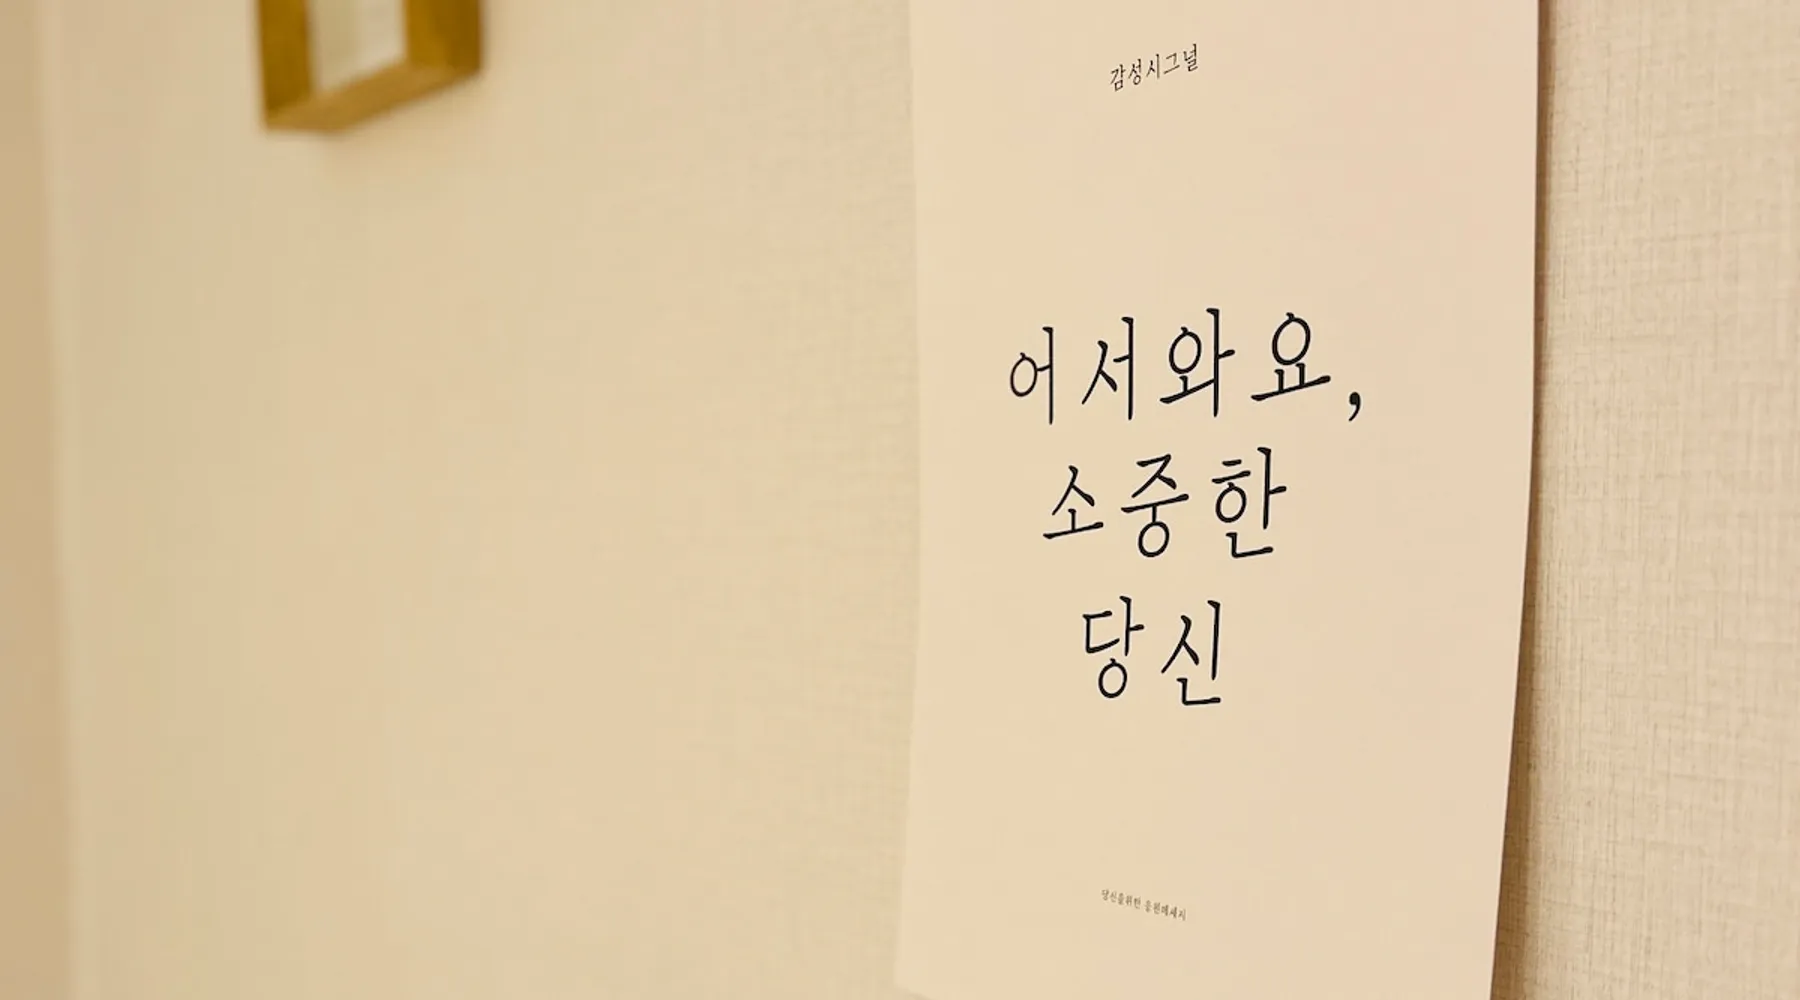 감성시그널
어서와요,
소중한
당신
당신을위한 응원메세지